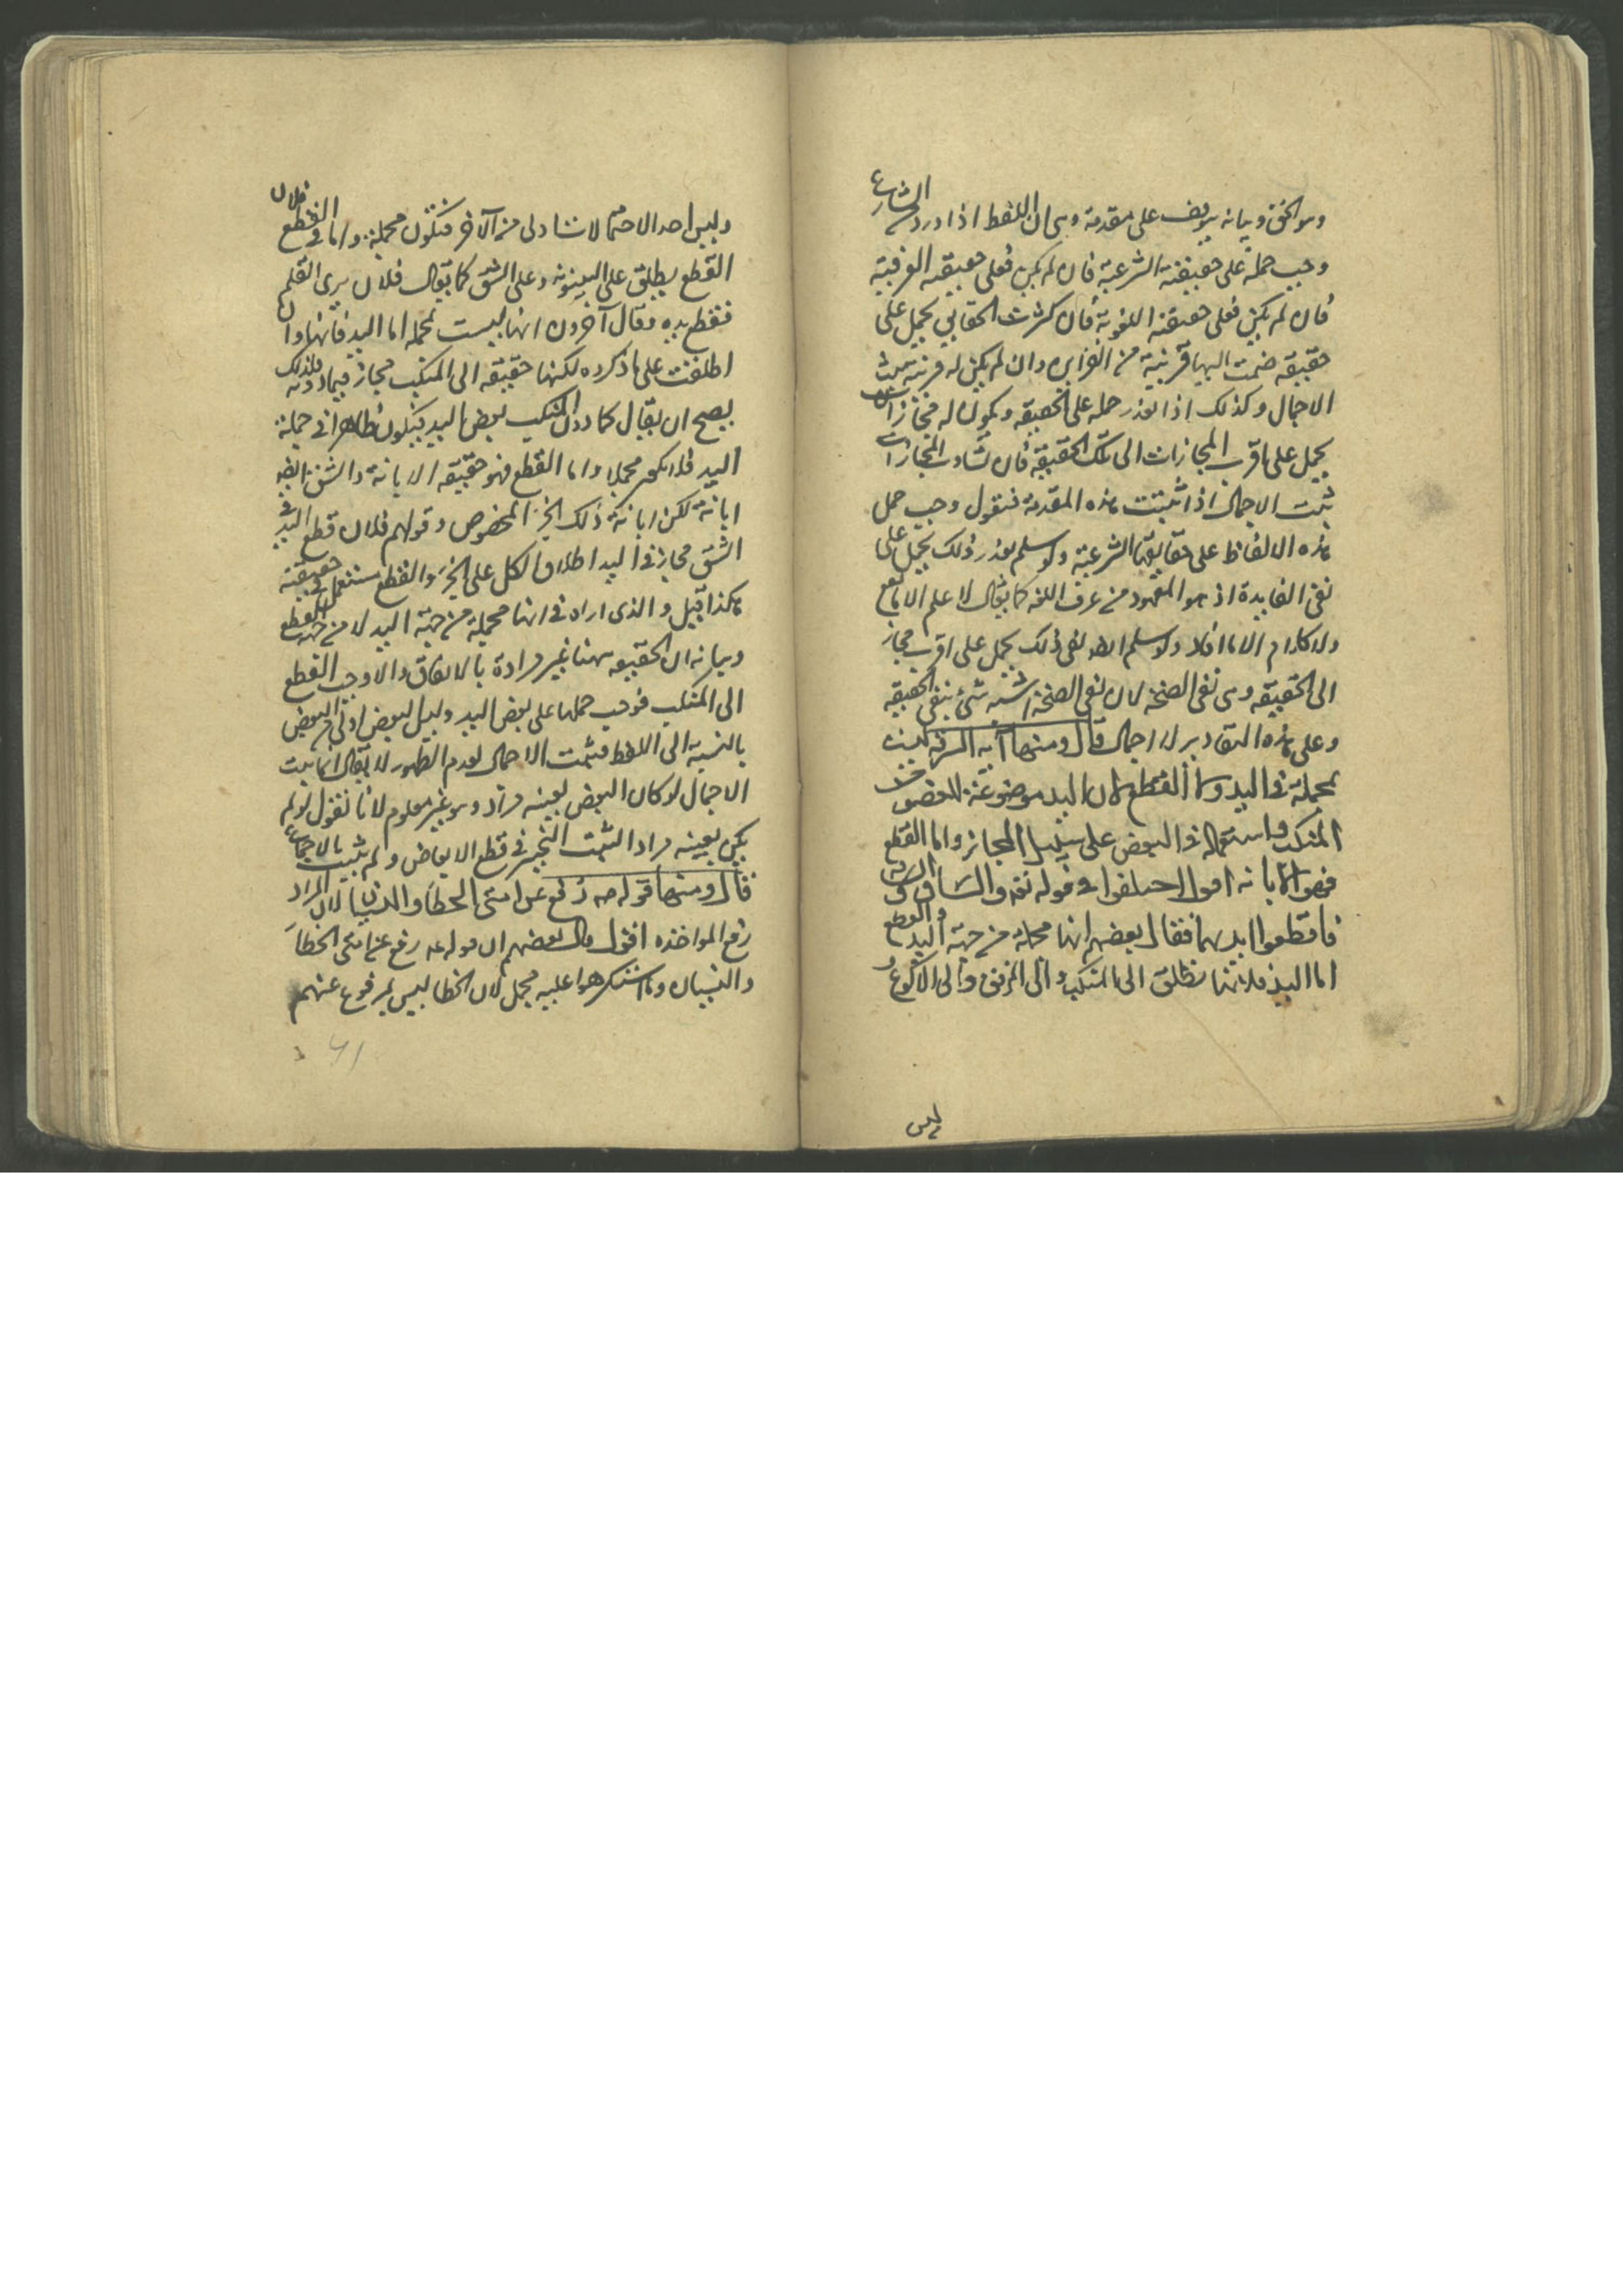 وهو الحق وبيانه يتوقف على مقدمة وهى ان اللفظ اذا ورد من الشارع
وجب حمله على حقيقته الشرعية فان لم يكن فعلى حقيقته العرفية
فان لم يكن فعلى حقيقته اللغوية فان كثرت الحقايق يحمل على
حقيقة ضمت اليها قرينة من القراين وان لم يكن له قرينة ثبت
الاجمال وكذلك اذا تعذر حمله على الحقيقة ويكون له مجازات
يحمل على اقرب المجازات الى تلك الحقيقة فان تساوت المجازات
ثبت الاجمال اذا ثبتت هذه المقدمة فنقول وجب حمل
هذه الالفاظ على حقايقها الشرعية ولو سلم تعذر ذلك يحمل على
نفى الفايدة اذ هو المعهود من عرف اللغة كما يقال لا علم الا ما نفع
ولا كلام الا ما افاد ولو سلم انتفى ذلك يحمل على اقرب مجاز
الى الحقيقة وهى نفى الصحة لان نفى الصحة اشبه شئ بنفى الحقيقة
وعلى هذه التقادير لا اجمال قال ومنها آية السرقة ليست
بمجملة فى اليد ولا القطع لان اليد موضوعة للعضو من
المنكب واستعماله فى البعض على سبيل المجاز واما القطع
فهو الابانة اقول اختلفوا فى قوله تعه والسارق والسارقة
فاقطعوا ايديهما فقال بعضهم انها مجملة من جهة اليد والقطع
اما اليد فلانها تطلق الى المنكب والى المرفق والى الكوع و
ليس
وليس احد الاحتمالات اولى من الآخر فتكون مجملة واما فى القطع فلان
القطع يطلق على البينونة وعلى الشق كما يقال فلان برى القلم
فقطع يده وقال آخرون انها ليست بمجملة اما اليد فانها وان
اطلقت على ما ذكروه لكنها حقيقة الى المنكب مجاز فيما دونه ولذلك
يصح ان يقال لما دون المنكب بعض اليد فيكون ظاهرا فى جملة
اليد فلا يكون مجملا واما القطع فهو حقيقة الابانة والشق ايضا
ابانة لكن ابانة ذلك الجزء المخصوص وقولهم فلان قطع اليد فى
الشق مجاز فى اليد اطلاق الكل على الجزء والقطع مستعمل فى حقيقته
هكذا قيل والذى اراه فى انها مجملة من جهة اليد لا من جهة القطع
وبيانه ان الحقيقة هنا غير مرادة بالاتفاق والا وجب القطع
الى المنكب فوجب حملها على بعض اليد وليس البعض اولى من البعض
بالنسبة الى اللفظ فثبت الاجمال لعدم الظهور لا يقال انما يثبت
الاجمال لو كان البعض بعينه مراد وهو غير معلوم لانا نقول لو لم
يكن بعينه مرادا لثبت التخيير فى قطع الابعاض ولم يثبت بالاجماع
قال ومنها قوله صه رفع عن امتى الخطأ والنسيان لان المراد
رفع المواخذه اقول قال بعضهم ان قوله عه رفع عن امتى الخطأ
والنسيان وما استكرهوا عليه مجمل لان الخطا ليس بمرفوع عنهم